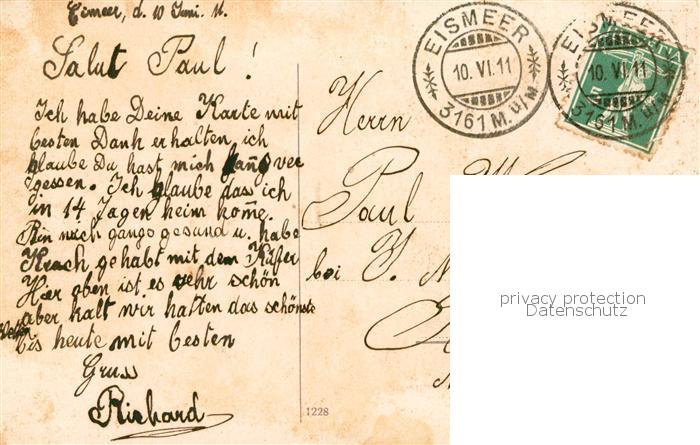 Eismeer, d. 10 Juni. 11.
Salut Paul!
Ich habe Deine Karte mit
besten Dank erhalten, ich
glaube Du hast mich ganz ver
gessen. Ich glaube das ich
in 14 Tagen heim kom̅e.
Bin noch ganz gesund u. habe
Krach gehabt mit dem Küfer
Hier oben ist es sehr schön
aber kalt wir hatten das schönste
Wetter
bis heute mit besten
Gruss
Richard
EISMEER
10. VI. 11
3161 M. ü/M
EISMEER
10. VI. 11
3161 M. ü/M
5
Herrn
Paul
bei J.
1228
privacy protection
Datenschutz